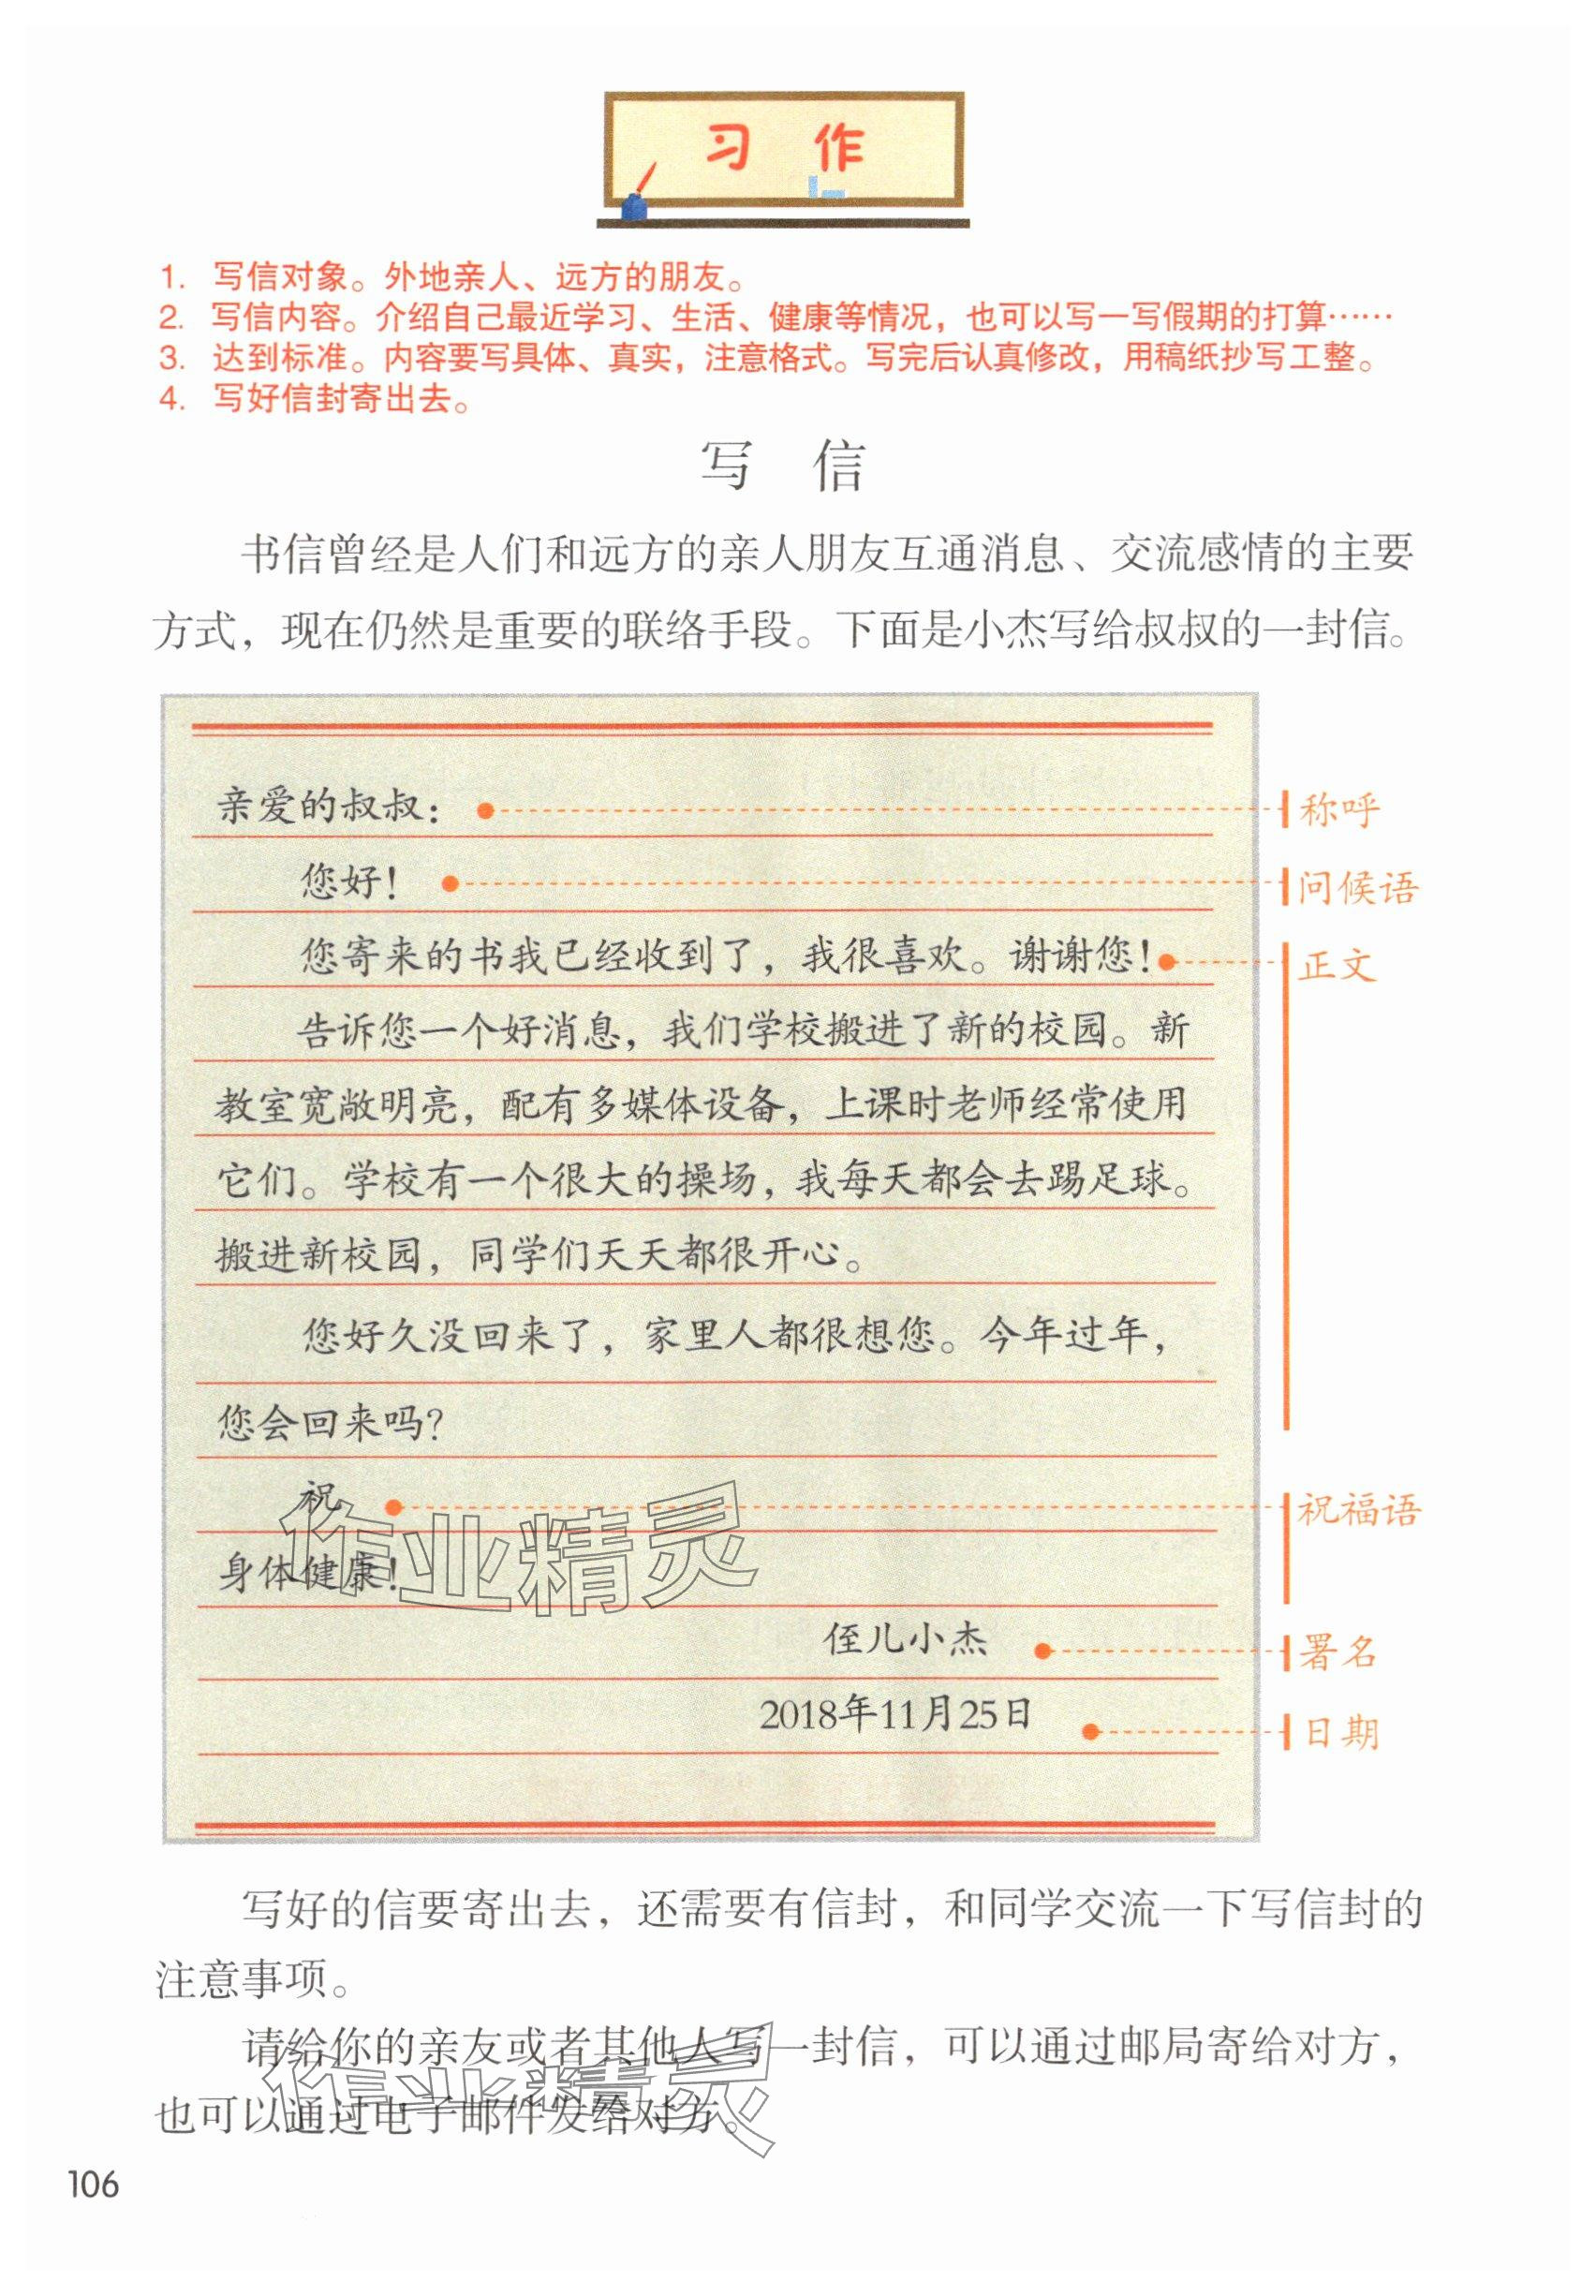 习 作
1. 写信对象。外地亲人、远方的朋友。
2. 写信内容。介绍自己最近学习、生活、健康等情况，也可以写一写假期的打算……
3. 达到标准。内容要写具体、真实，注意格式。写完后认真修改，用稿纸抄写工整。
4. 写好信封寄出去。
写 信
书信曾经是人们和远方的亲人朋友互通消息、交流感情的主要
方式，现在仍然是重要的联络手段。下面是小杰写给叔叔的一封信。
亲爱的叔叔：
称呼
您好！
问候语
您寄来的书我已经收到了，我很喜欢。谢谢您！
正文
告诉您一个好消息，我们学校搬进了新的校园。新
教室宽敞明亮，配有多媒体设备，上课时老师经常使用
它们。学校有一个很大的操场，我每天都会去踢足球。
搬进新校园，同学们天天都很开心。
您好久没回来了，家里人都很想您。今年过年，
您会回来吗？
祝
祝福语
身体健康！
作业精灵
侄儿小杰
署名
2018年11月25日
日期
写好的信要寄出去，还需要有信封，和同学交流一下写信封的
注意事项。
请给你的亲友或者其他人写一封信，可以通过邮局寄给对方，
也可以通过电子邮件发给对方。
作业精灵
106